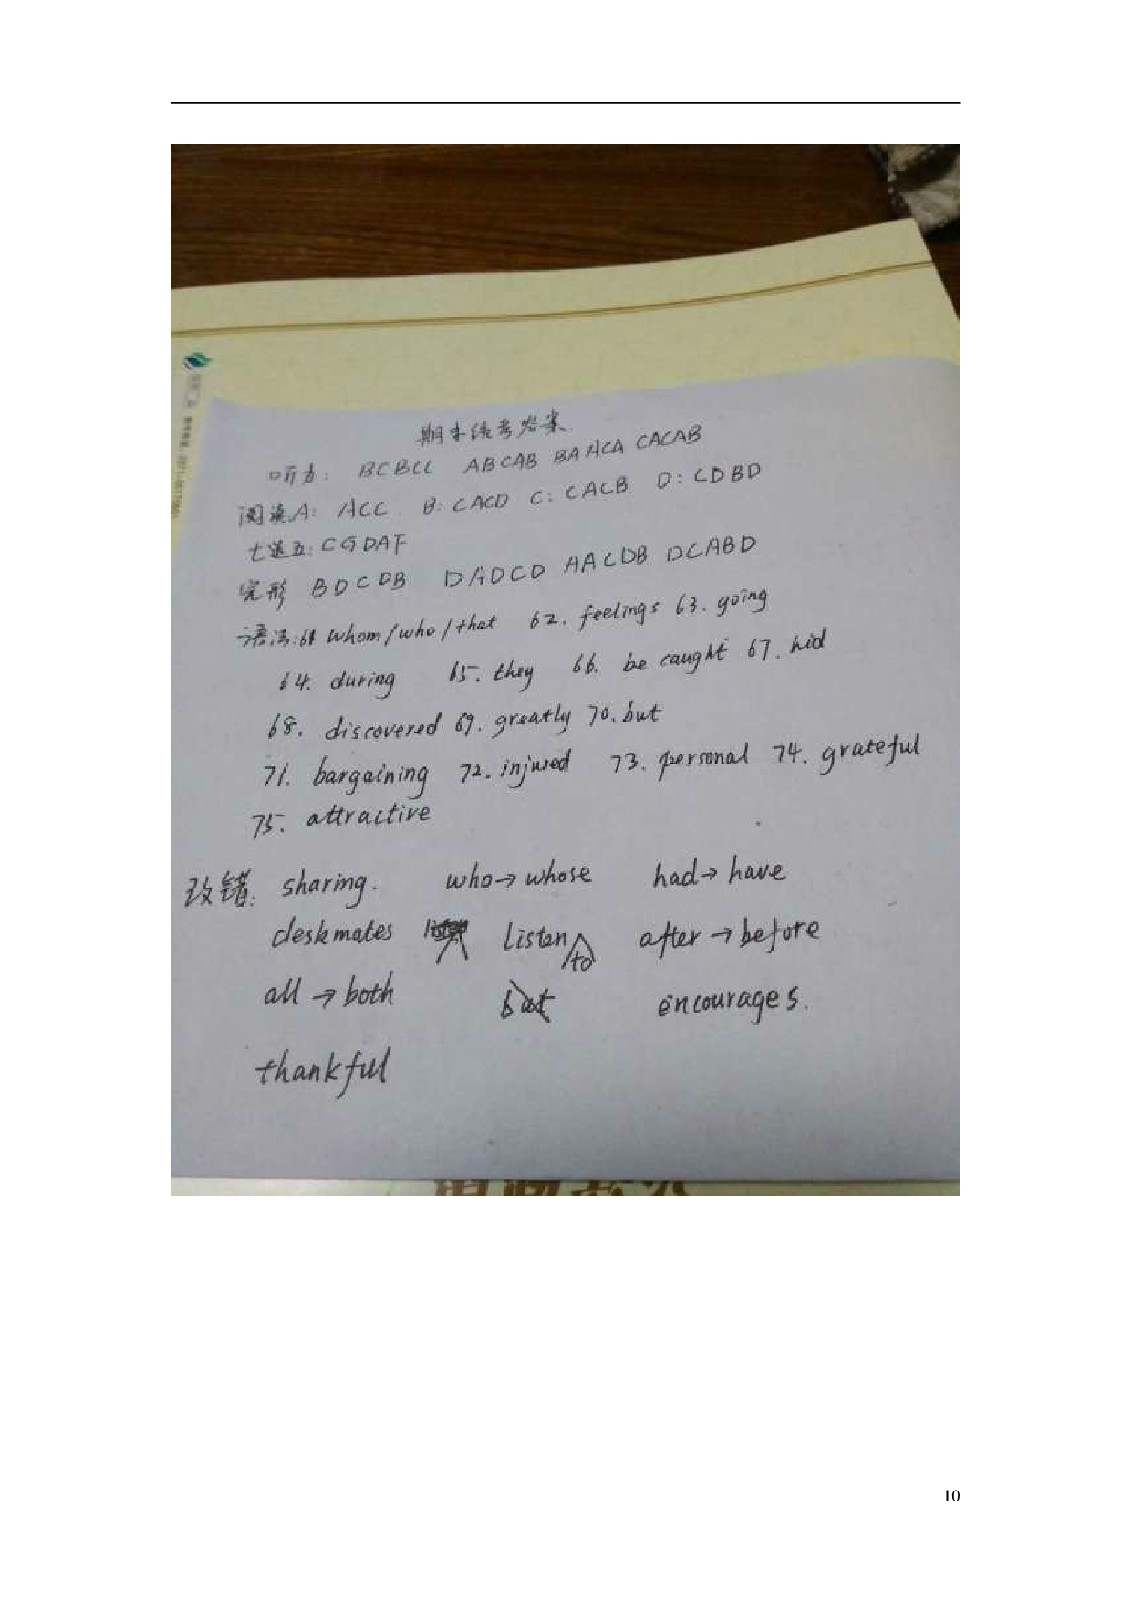 期末统考答案
听力: BCBCC ABCAB BAACA CACAB
阅读A: ACC B: CACD C: CACB D: CDBD
七选五: CGDAF
完形 BDCDB DADCD AACDB DCABD
语法:61 whom/who/that 62. feelings 63. going
64. during 65. they 66. be caught 67. hid
68. discovered 69. greatly 70. but
71. bargaining 72. injured 73. personal 74. grateful
75. attractive
改错: sharing. who→whose had→have
deskmates listen to after→before
all→both but encourages.
thankful
10